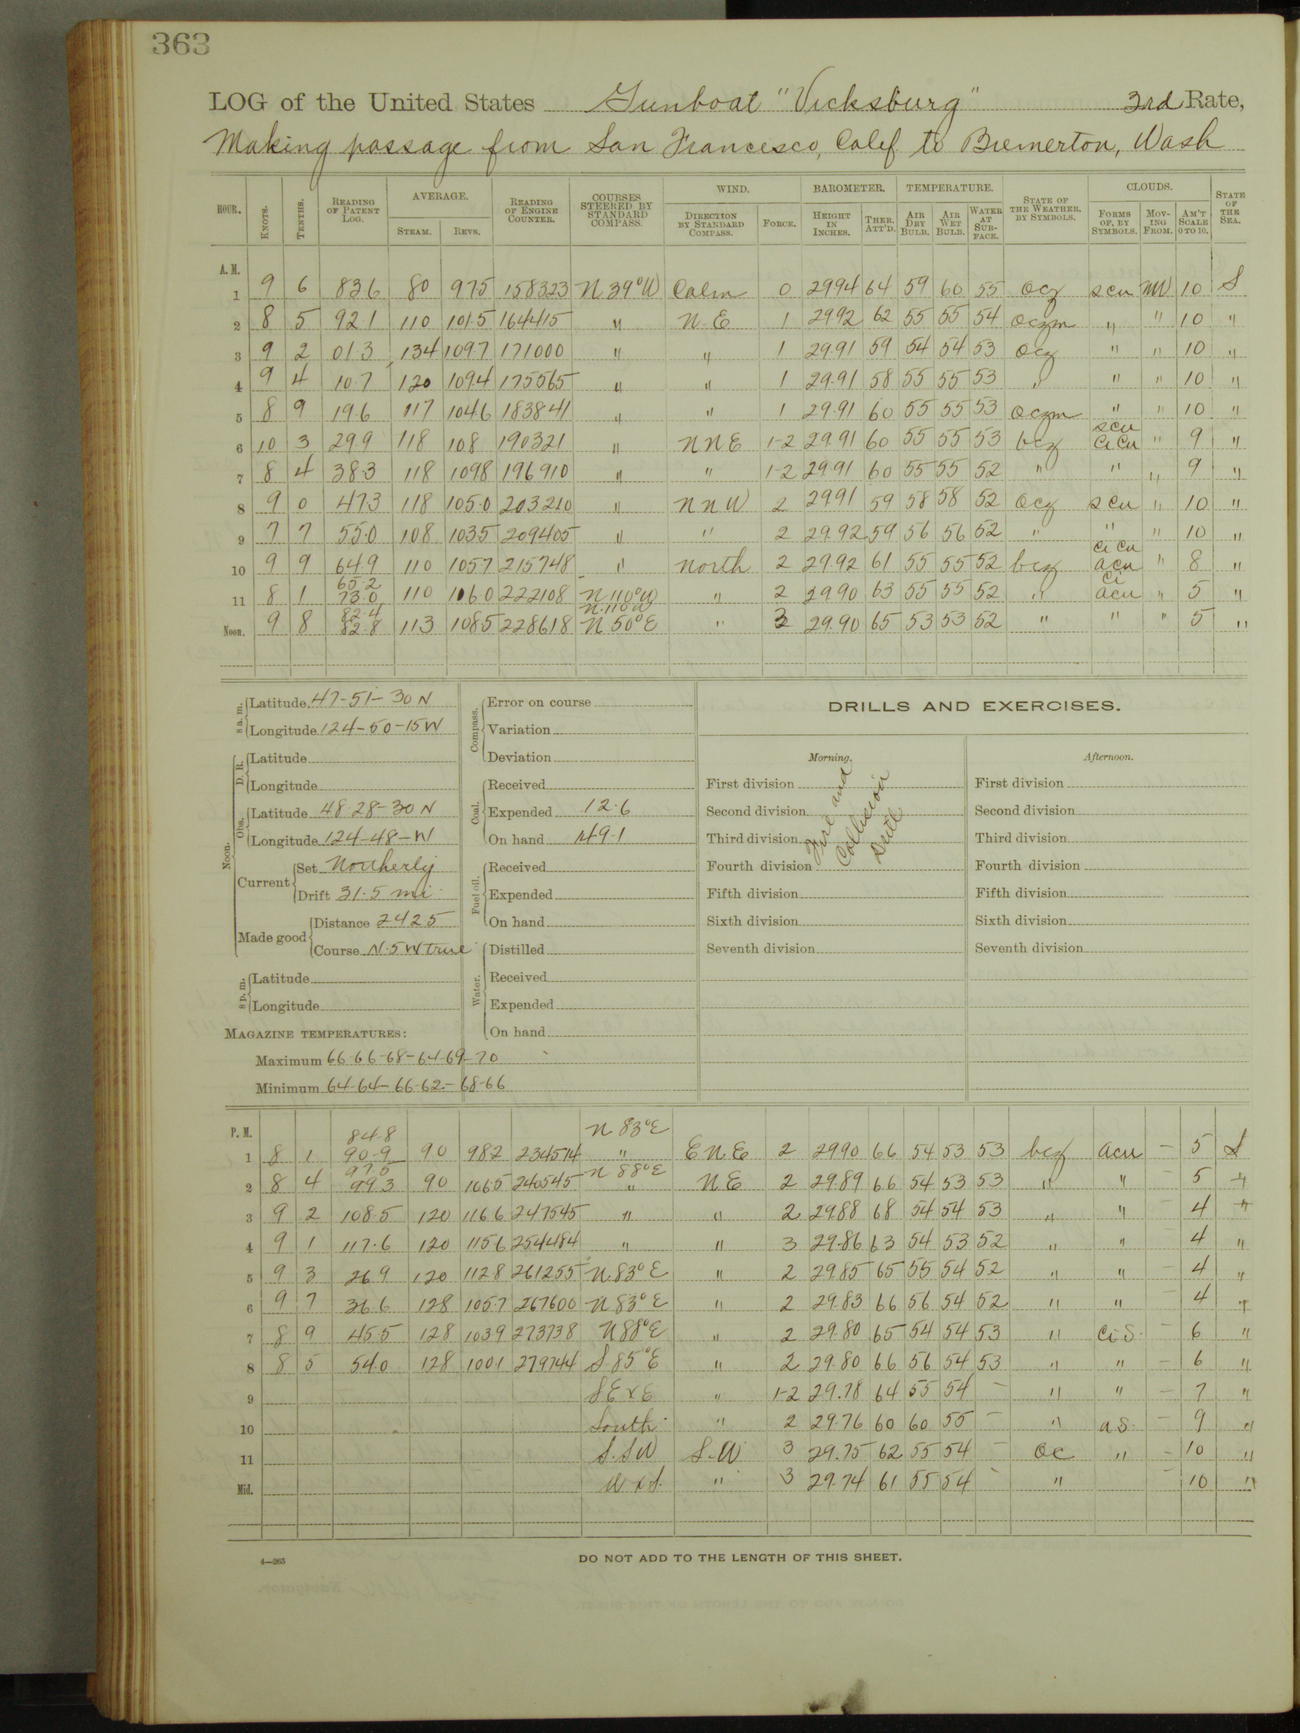 363
LOG of the United States Gunboat "Vicksburg" 3rd Rate,
Making passage from San Francesco, Calif to Bremerton, Wash
HOUR. KNOTS. TENTHS. READING OF PATENT LOG. AVERAGE. STEAM. REVS. READING OF ENGINE COUNTER. COURSES STEERED BY STANDARD COMPASS. WIND. DIRECTION BY STANDARD COMPASS. FORCE. BAROMETER. HEIGHT IN INCHES. THER. ATT'D. TEMPERATURE. AIR DRY BULB. AIR WET BULB. WATER AT SURFACE. STATE OF THE WEATHER, BY SYMBOLS. CLOUDS. FORMS OF, BY SYMBOLS. MOVING FROM. AM'T SCALE 0 TO 10. STATE OF THE SEA.
A. M.
1 9 6 83.6 80 97.5 158323 N 39°W Calm 0 29.94 64 59 60 55 ocz scu NW 10 S
2 8 5 92.1 110 101.5 164415 " N.E 1 29.92 62 55 55 54 oczm " " 10 "
3 9 2 01.3 134 109.7 171000 " " 1 29.91 59 54 54 53 ocz " " 10 "
4 9 4 10.7 120 109.4 175565 " " 1 29.91 58 55 55 53 " " " 10 "
5 8 9 19.6 117 104.6 183841 " " 1 29.91 60 55 55 53 oczm " " 10 "
6 10 3 29.9 118 108 190321 " NNE 1-2 29.91 60 55 55 53 bcz scu cicu " 9 "
7 8 4 38.3 118 109.8 196910 " " 1-2 29.91 60 55 55 52 " " " 9 "
8 9 0 47.3 118 105.0 203210 " NNW 2 29.91 59 58 58 52 ocz scu " 10 "
9 7 7 55.0 108 103.5 209405 " " 2 29.92 59 56 56 52 " " " 10 "
10 9 9 64.9 110 105.7 215748 " North 2 29.92 61 55 55 52 bcz cicu acu " 8 "
11 8 1 65.2 73.0 110 106.0 222108 N 110°W " 2 29.90 63 55 55 52 " ci acu " 5 "
Noon. 9 8 82.4 82.8 113 108.5 228618 N 110°W N 50°E " 3 29.90 65 53 53 52 " " " 5 "
8 a. m. Latitude 47-51-30 N
Longitude 124-50-15 W
Noon. D. R. Latitude
Longitude
Obs. Latitude 48-28-30 N
Longitude 124-48-W
Current Set Northerly
Drift 31.5 mi
Made good Distance 242.5
Course N.5 W true
8 p. m. Latitude
Longitude
MAGAZINE TEMPERATURES:
Maximum 66-66-68-64-69-70
Minimum 64-64-66-62-68-66
Compass. Error on course
Variation
Deviation
Coal. Received
Expended 12.6
On hand 149.1
Fuel oil. Received
Expended
On hand
Water. Distilled
Received
Expended
On hand
DRILLS AND EXERCISES.
Morning.
First division
Second division
Third division
Fourth division
Fifth division
Sixth division
Seventh division
Fire and
Collision
Drill
Afternoon.
First division
Second division
Third division
Fourth division
Fifth division
Sixth division
Seventh division
P. M.
1 8 1 84.8 90.9 90 98.2 234514 N 83°E " ENE 2 29.90 66 54 53 53 bcz acu - 5 S
2 8 4 97.5 99.3 90 106.5 240545 N 88°E " NE 2 29.89 66 54 53 53 " " - 5 "
3 9 2 108.5 120 116.6 247545 " " 2 29.88 68 54 54 53 " " - 4 "
4 9 1 117.6 120 115.6 254484 " " 3 29.86 63 54 53 52 " " 4 "
5 9 3 26.9 120 112.8 261255 N.83°E " 2 29.85 65 55 54 52 " " - 4 "
6 9 7 36.6 128 105.7 267600 N 83°E " 2 29.83 66 56 54 52 " " - 4 "
7 8 9 45.5 128 103.9 273738 N88°E " 2 29.80 65 54 54 53 " Ci S. - 6 "
8 8 5 54.0 128 100.1 279744 S.85°E " 2 29.80 66 56 54 53 " " - 6 "
9 SExE " 1-2 29.78 64 55 54 - " " - 7 "
10 South " 2 29.76 60 60 55 - " a S. - 9 "
11 S.SW S.W 3 29.75 62 55 54 - oc " - 10 "
Mid. W x S. " 3 29.74 61 55 54 - " - 10 "
4-265
DO NOT ADD TO THE LENGTH OF THIS SHEET.